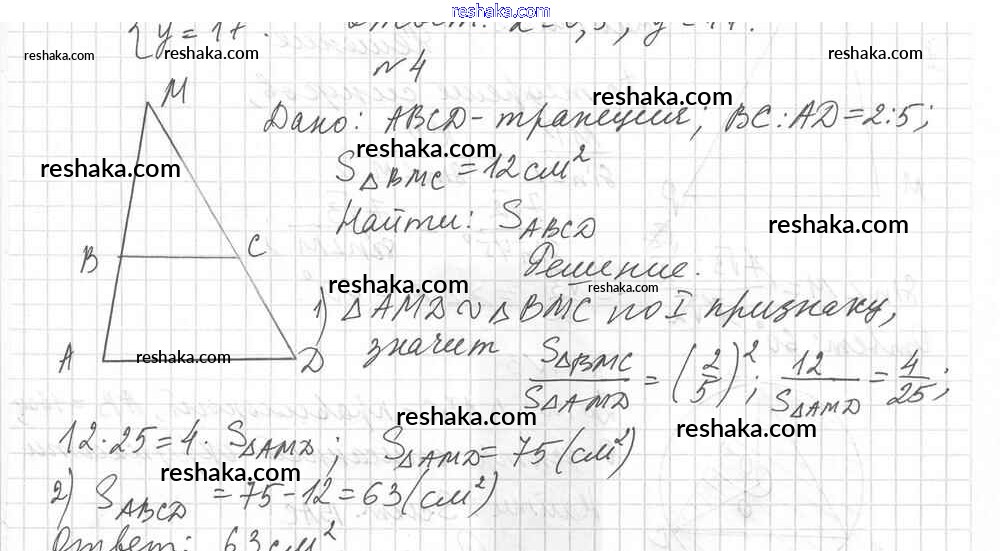 reshaka.com
{ y = 17.
reshaka.com reshaka.com reshaka.com
№4
M
reshaka.com
Дано: ABCD - трапеция; BC : AD = 2:5;
reshaka.com reshaka.com
S△BMC = 12 см²
Найти: SABCD
reshaka.com
B C
Решение.
reshaka.com reshaka.com
1) △AMD ∾ △BMC по I признаку,
A D
reshaka.com
значит S△BMC / S△AMD = (2/5)²; 12 / S△AMD = 4/25;
reshaka.com reshaka.com
12 · 25 = 4 · S△AMD; S△AMD = 75 (см²)
reshaka.com
2) SABCD = 75 - 12 = 63 (см²)
reshaka.com
Ответ: 63 см²